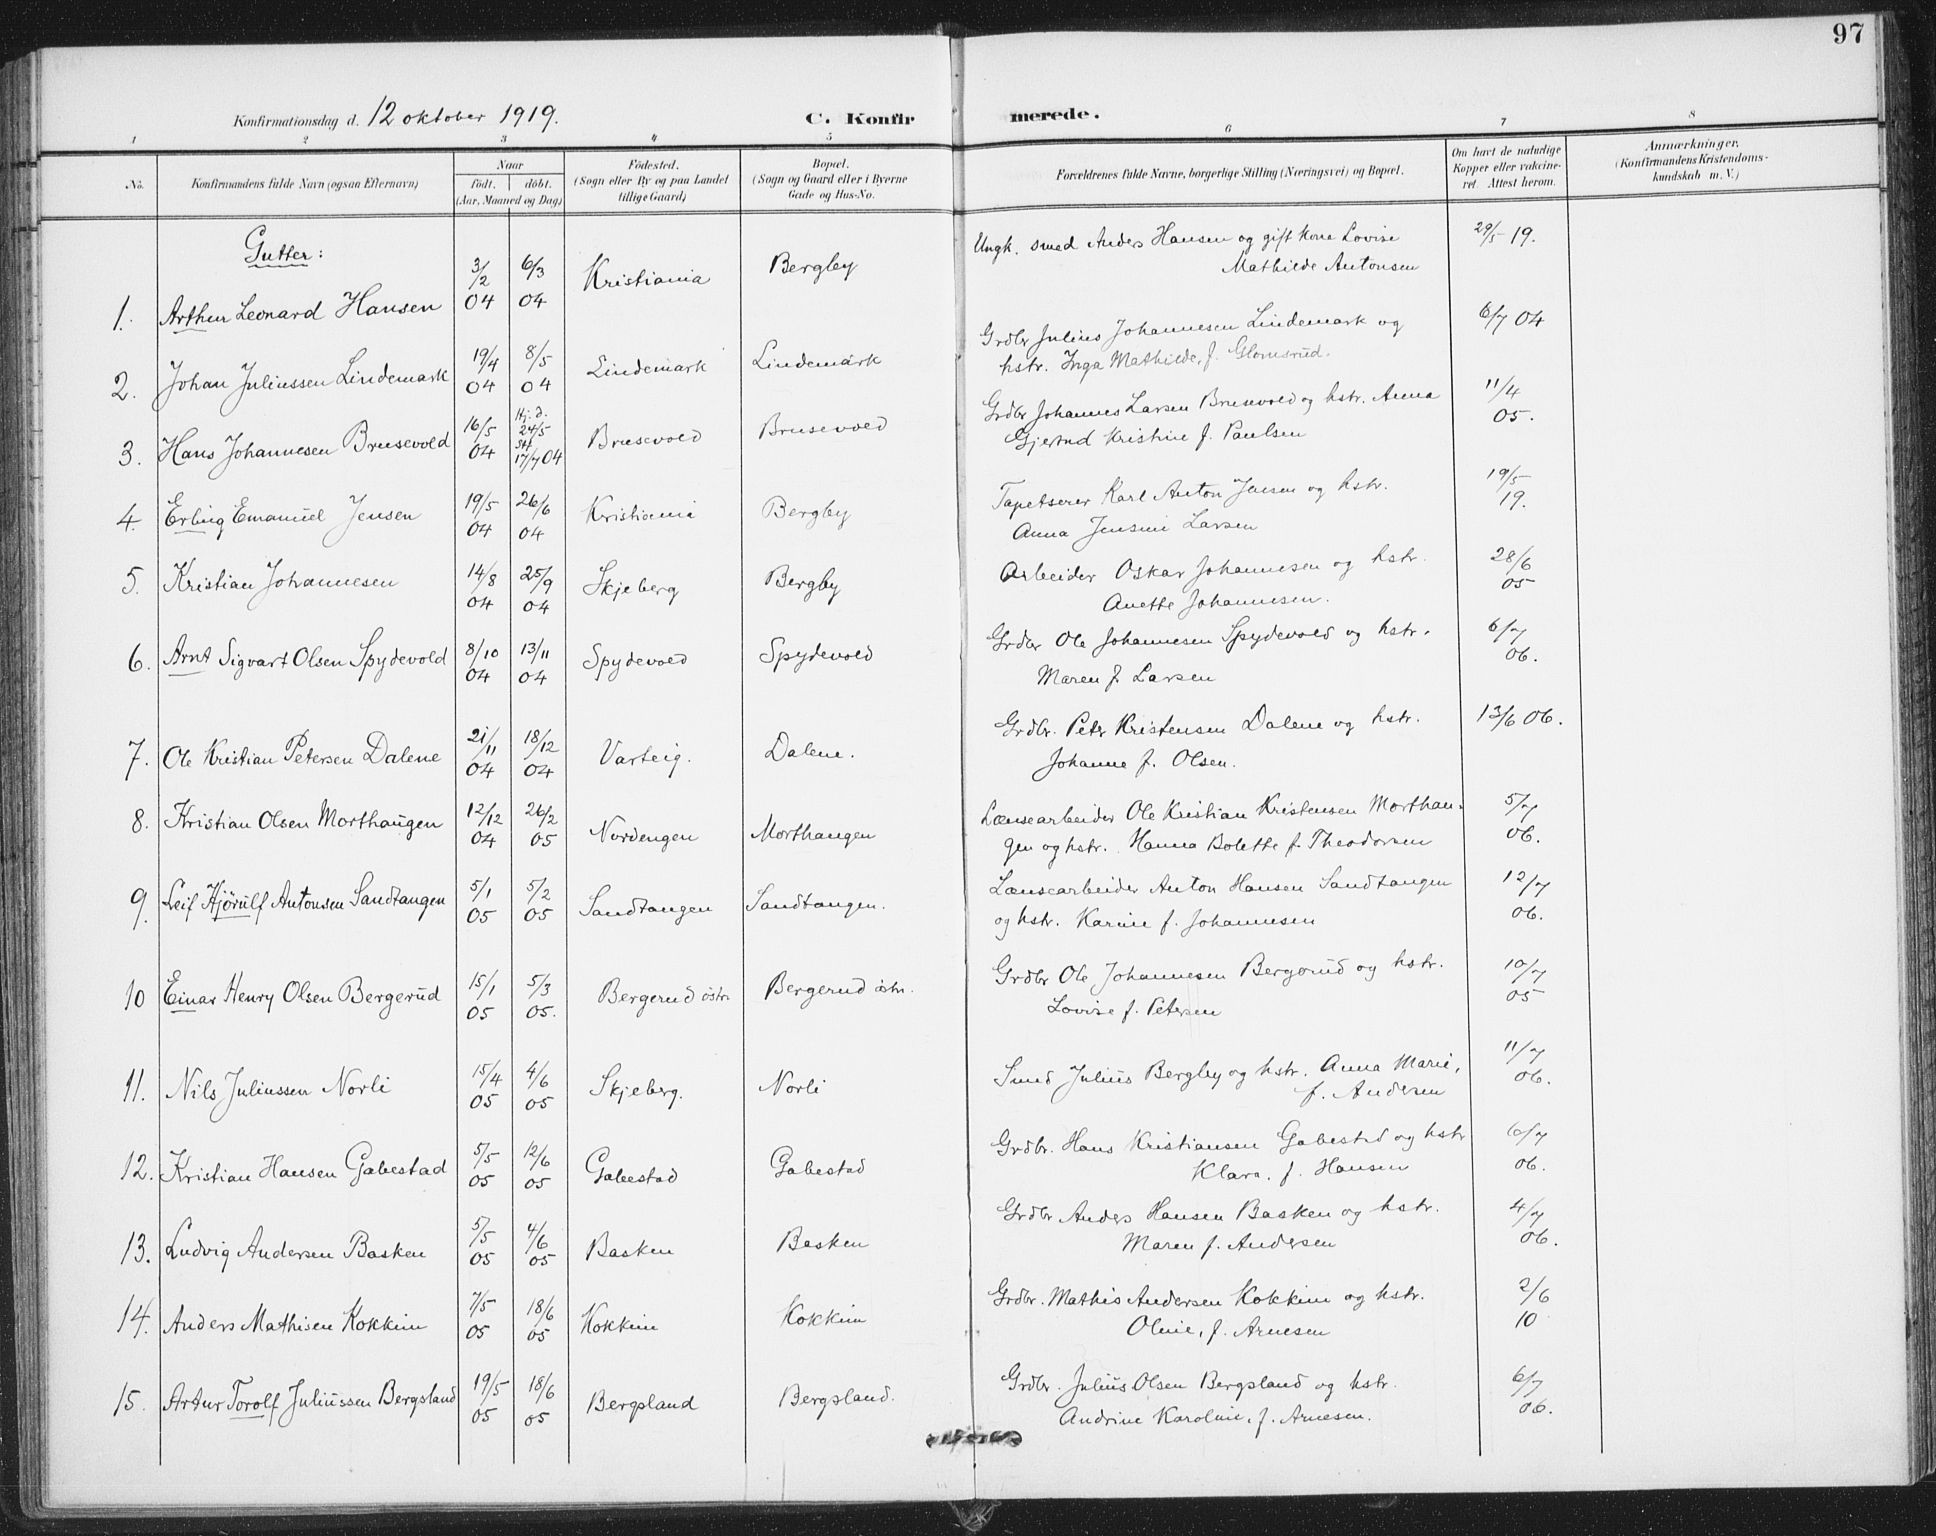 97
Konfirmationsdag d. 12 oktober 1919.
C. Konfir merede.
1 2 3 4 5 6 7 8
No.
Konfirmandens fulde Navn (ogsaa Efternavn)
Naar
født. døbt.
(Aar, Maaned og Dag)
Fødested.
(Sogn eller By og paa Landet
tillige Gaard)
Bopæl.
(Sogn og Gaard eller i Byerne
Gade og Hus-No.
Forældrenes fulde Navne, borgerlige Stilling (Næringsvei) og Bopæl.
Om havt de naturlige
Kopper eller vakcine-
ret. Attest herom.
Anmærkninger.
(Konfirmandens Kristendoms-
kundskab m. V.)
Gutter:
1. Arthur Leonard Hansen 3/2 04 6/3 04 Kristiania Bergby Ungk. smed Anders Hansen og gift kone Lovise
Mathilde Antonsen 29/5 19.
2. Johan Juliussen Lindemark 19/4 04 8/5 04 Lindemark Lindemark Grdbr Julius Johannesen Lindemark og
hstr. Inga Mathilde, f. Glomsrud. 6/7 04
3. Hans Johannesen Brusevold 16/5 04 Hj. d. 24/5 st 17/7 04 Brusevold Brusevold Grdbr Johannes Larsen Brusevold og hstr. Anna
Gjertrud Kristine f. Paulsen 11/4 05.
4. Erling Emanuel Jensen 19/5 04 26/6 04 Kristiania Bergby Tapetserer Karl Anton Jensen og hstr.
Anna Jensine Larsen 19/5 19.
5. Kristian Johannesen 14/8 04 25/9 04 Skjeberg Bergby Arbeider Oskar Johannesen og hstr.
Anette Johannesen. 28/6 05
6. Arnt Sigvart Olsen Spydevold 8/10 04 13/11 04 Spydevold Spydevold Grdbr Ole Johannesen Spydevold og hstr.
Maren f. Larsen 6/7 06.
7. Ole Kristian Petersen Dalene 21/11 04 18/12 04 Varteig. Dalene. Grdbr. Peter Kristensen Dalene og hstr.
Johanne f. Olsen. 13/6 06.
8. Kristian Olsen Morthaugen 12/12 04 26/2 05 Nordengen Morthaugen Lænsearbeider Ole Kristian Kristensen Morthau-
gen og hstr. Hanna Bolette f. Theodorsen 5/7 06.
9. Leif Hjørulf Antonsen Sandtangen 5/1 05 5/2 05 Sandtangen Sandtangen. Lænsearbeider Anton Hansen Sandtangen
og hstr. Karine f. Johannesen 12/7 06.
10 Einar Henry Olsen Bergerud 15/1 05 5/3 05. Bergerud østr. Bergerud østr. Grdbr Ole Johannesen Bergerud og hstr.
Lovise f. Petersen 10/7 05
11. Nils Juliussen Norli 15/4 05 4/6 05 Skjeberg. Norli Smed Julius Bergby og hstr. Anna Marie,
f. Andersen 11/7 06.
12. Kristian Hansen Gabestad 5/5 05 12/6 05 Gabestad Gabestad Grdbr. Hans Kristiansen Gabestad og hstr
Klara. f. Hansen 6/7 06.
13. Ludvig Andersen Basken 5/5 05 4/6 05 Basken Basken Grdbr Anders Hansen Basken og hstr.
Maren f. Andersen 4/7 06.
14. Anders Mathisen Kokkim 7/5 05 18/6 05 Kokkim Kokkim Grdbr. Mathis Andersen Kokkim og hstr.
Oline, f. Arnesen 2/6 10
15. Artur Torolf Juliussen Bergsland 19/5 05 18/6 05 Bergsland Bergsland. Grdbr. Julius Olsen Bergsland og hstr.
Andrine Karoline, f. Arnesen. 6/7 06.